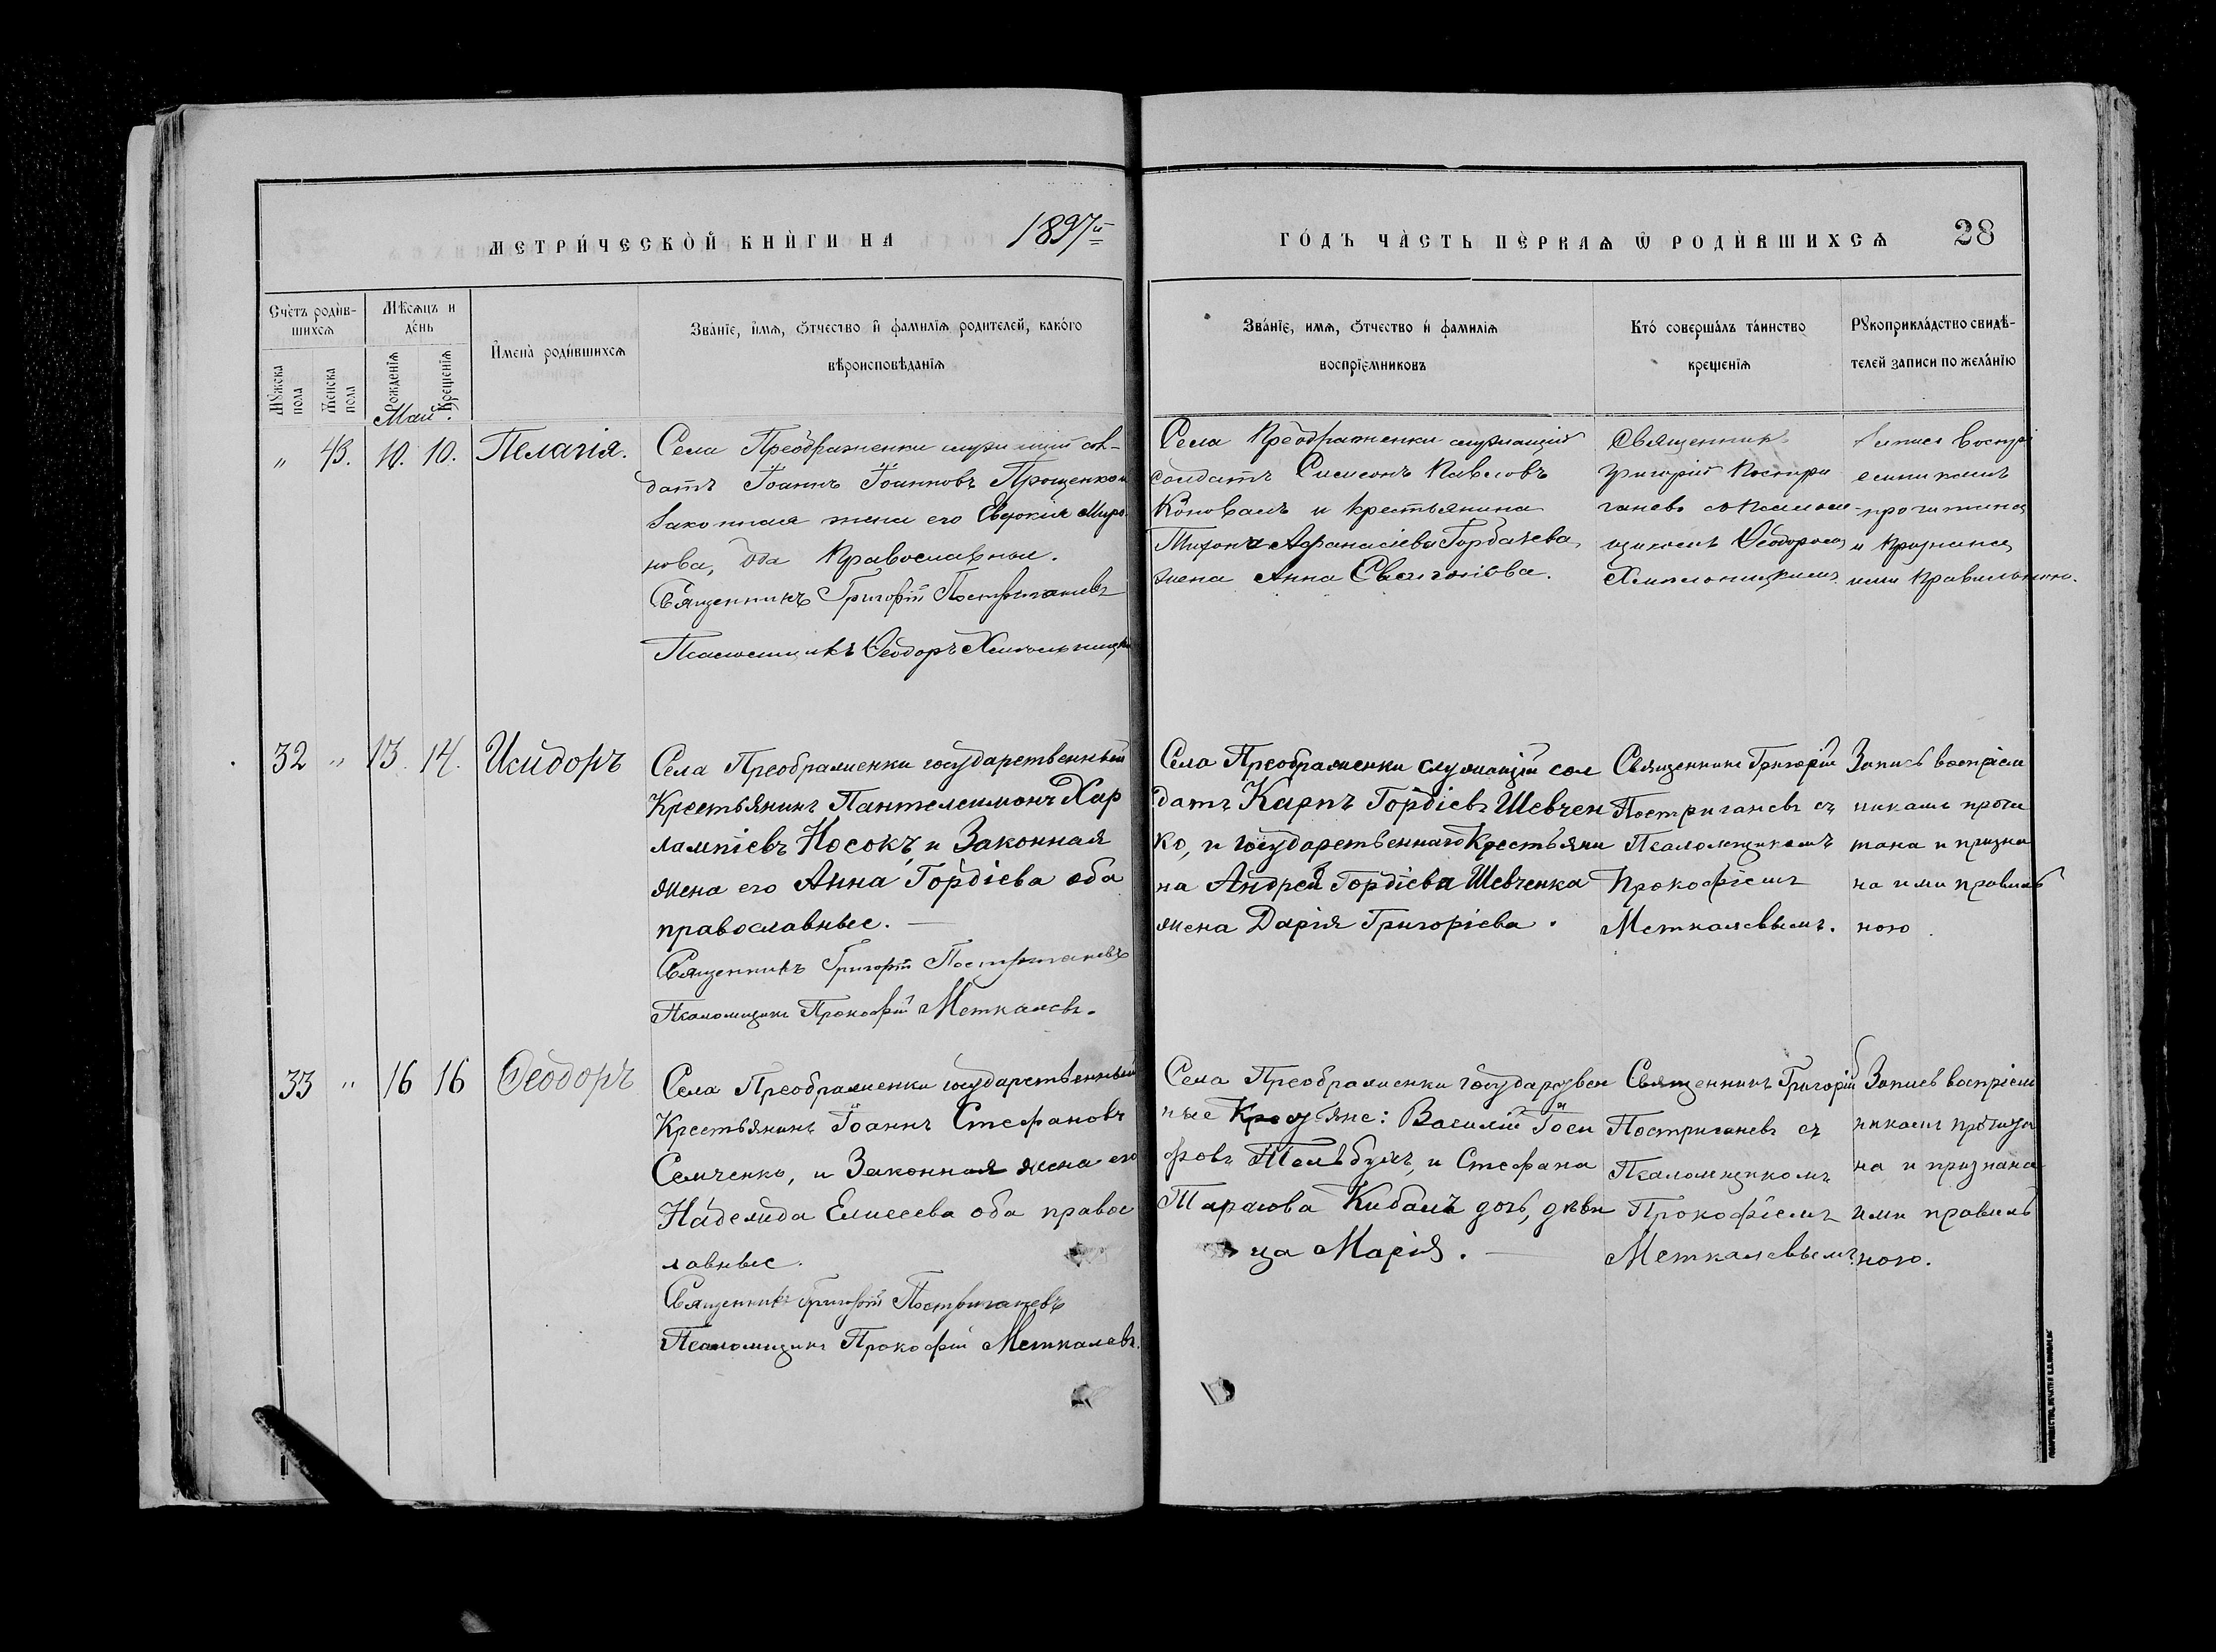 МЕТРИ́ЧЕСКОЙ КНИ́ГИ НА 1897й
ГО́ДЪ ЧА́СТЬ ПЕ́РВАѦ Ѡ РОДИ́ВШИХСѦ 28
Сче́тъ роди́в-
шихсѧ
Мѣ́сѧцъ и
де́нь
Му́жска
пола
Же́нска
пола
Рожде́нїѧ
Креще́нїѧ
Имена̀ роди́вшихсѧ
Зва́нїе, и́мѧ, ѻ́тчество и҆ фами́лїѧ роди́телей, како́го
вѣроисповѣ́данїѧ
Зва́нїе, имѧ, ѻ́тчество и҆ фами́лїѧ
воспрїе́мниковъ
Кто́ соверша́лъ та́инство
креще́нїѧ
Рꙋкоприкла́дство свидѣ́-
телей записи по жела́нїю
Май.
" 43. 10. 10. Пелагія.
Села Преображенки служащій сол-
датъ Іоаннъ Іоанновъ Прощенко и
Законная жена его Евдокія Миро-
нова, оба Православные.
Священникъ Григорій Постригачевъ
Псаломщикъ Ѳеодоръ Хмельницкій
Села Преображенки служащій
солдатъ Симеонъ Павловъ
Коновалъ и крестьянина
Тихона Афанасіева Горбачева,
жена Анна
Священник
Григорій Постри
гачевъ съ псалом-
щикомъ Ѳеодоромъ
Хмельницкимъ
Запись воспрі
емниками
прочитана
и признана
ими правильною.
32 " 13. 14. Исидоръ
Села Преображенки государственный
Крестьянинъ Пантелеимонъ Хар
лампіевъ Носокъ и Законная
жена его Анна Гордіева оба
православные. —
Священникъ Григорій Постригачевъ
Псаломщикъ Прокофій Меткалевъ.
Села Преображенки служащій сол
датъ Карпъ Гордіевъ Шевчен
ко, и государственнаго Крестьяни
на Андрея Гордіева Шевченка
жена Дарія Григоріева.
Священникъ Григорій
Постригачевъ съ
Псаломщикомъ
Прокофіемъ
Меткалевымъ.
Запись воспріем
никами прочи
тана и призна
на ими правиль
ною
33 " 16 16 Ѳеодоръ
Села Преображенки государственный
Крестьянинъ Іоаннъ Стефановъ
Семченко, и Законная жена его
Надежда Елисеева оба правос
лавные.
Священникъ Григорій Постригачевъ
Псаломщикъ Прокофій Меткалевъ.
Села Преображенки государствен
ные Крестьяне: Василій Іоси
фовъ и Стефана
Тарасова Кибаль дочь, дѣви
ца Марія. —
Священникъ Григорій
Постригачевъ съ
Псаломщикомъ
Прокофіемъ
Меткалевымъ.
Запись воспріем
никами прочита
на и признана
ими правиль
ною.